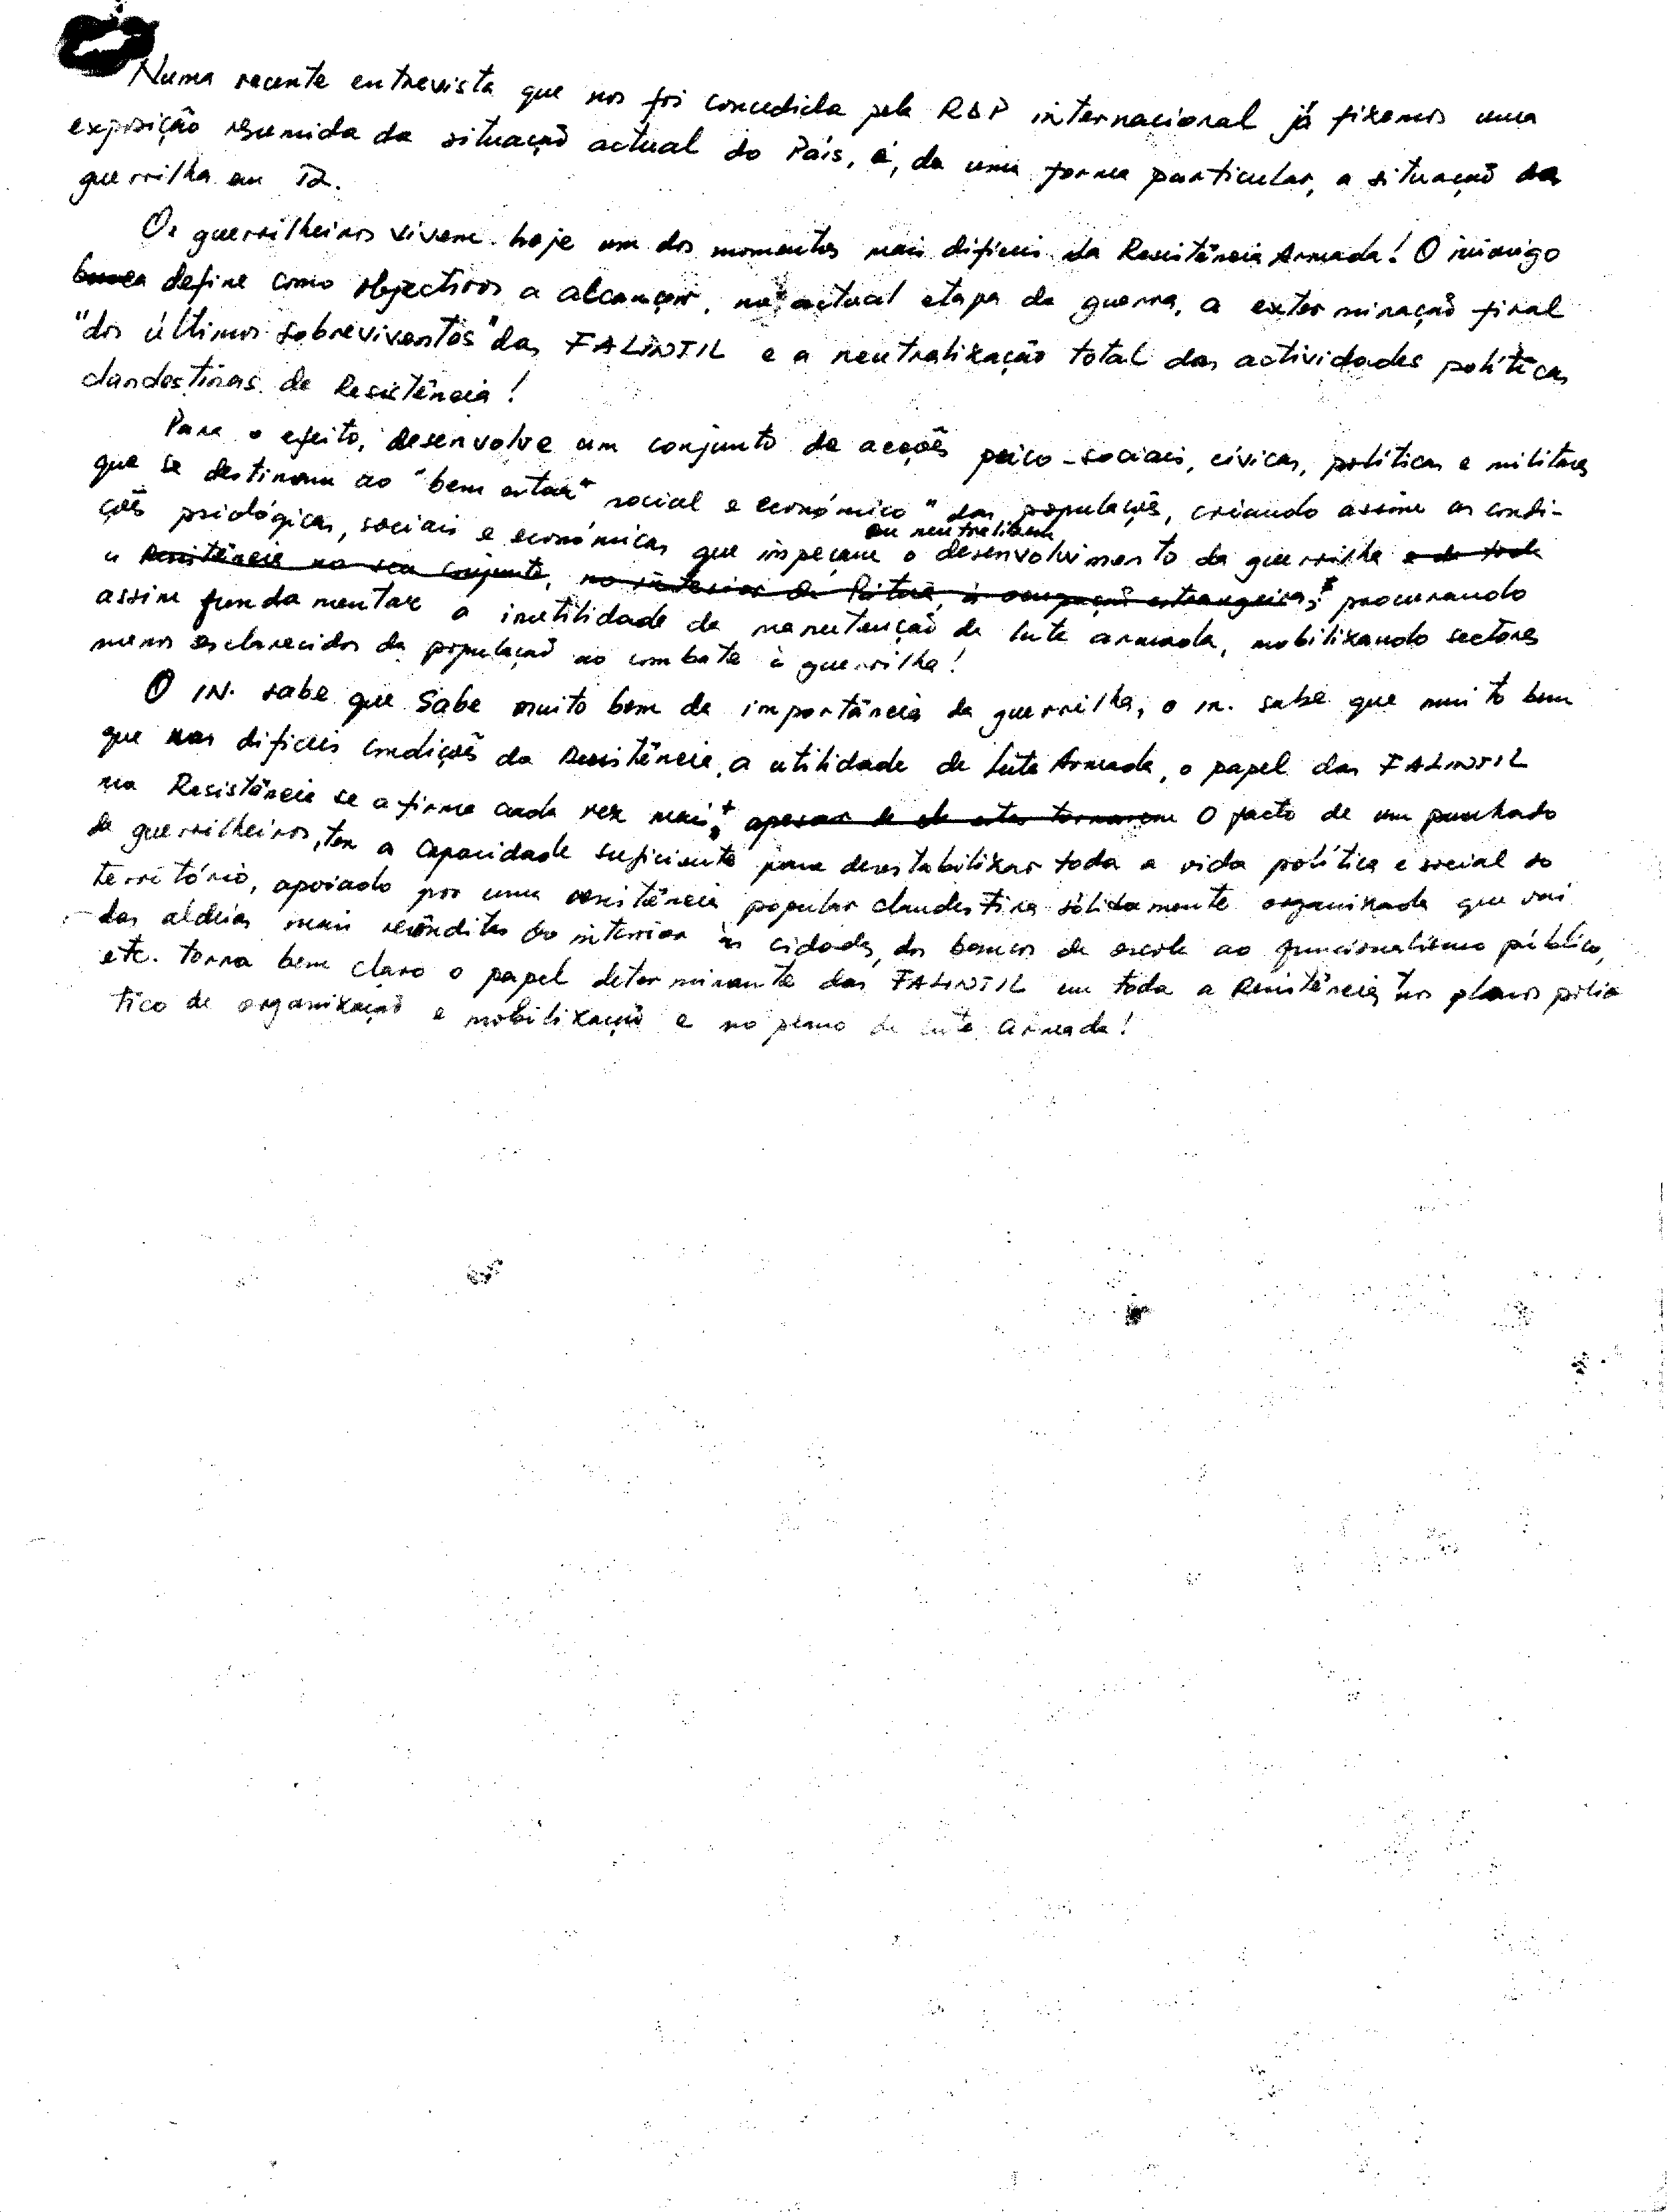 Numa recente entrevista que nos foi concedida pela RDP internacional já fizemos uma
exposição resumida da situação actual do País, e, de uma forma particular, a situação da
guerrilha em TL.
Os guerrilheiros vivem hoje um dos momentos mais difíceis da Resistência Armada! O inimigo
define como objectivos a alcançar, na actual etapa da guerra, a exterminação final
"dos últimos sobreviventes" das FALINTIL e a neutralização total das actividades políticas
clandestinas de Resistência!
Para o efeito, desenvolve um conjunto de acções psico-sociais, cívicas, políticas e militares
que se destinam ao "bem estar" social e económico" das populações, criando assim as condi-
ções psicológicas, sociais e económicas que impeçam ou neutralizem o desenvolvimento da guerrilha e de toda
a Resistência no seu conjunto, no interior da Pátria, à ocupação estrangeira, procurando
assim fundamentar a inutilidade da manutenção da luta armada, mobilizando sectores
menos esclarecidos da população no combate à guerrilha!
O IN. sabe que Sabe muito bem da importância da guerrilha, o in. sabe que muito bem
que nas difíceis condições da Resistência, a utilidade da Luta Armada, o papel das FALINTIL
na Resistência se afirma cada vez mais, apesar de se estes tornarem O facto de um punhado
de guerrilheiros, ter a capacidade suficiente para destabilizar toda a vida política e social do
território, apoiado por uma resistência popular clandestina sólidamente organizada que vai
das aldeias mais recônditas do interior às cidades, dos bancos de escola ao funcionalismo público,
etc. torna bem claro o papel determinante das FALINTIL em toda a Resistência nos planos polí
tico de organização e mobilização e no plano de luta armada!